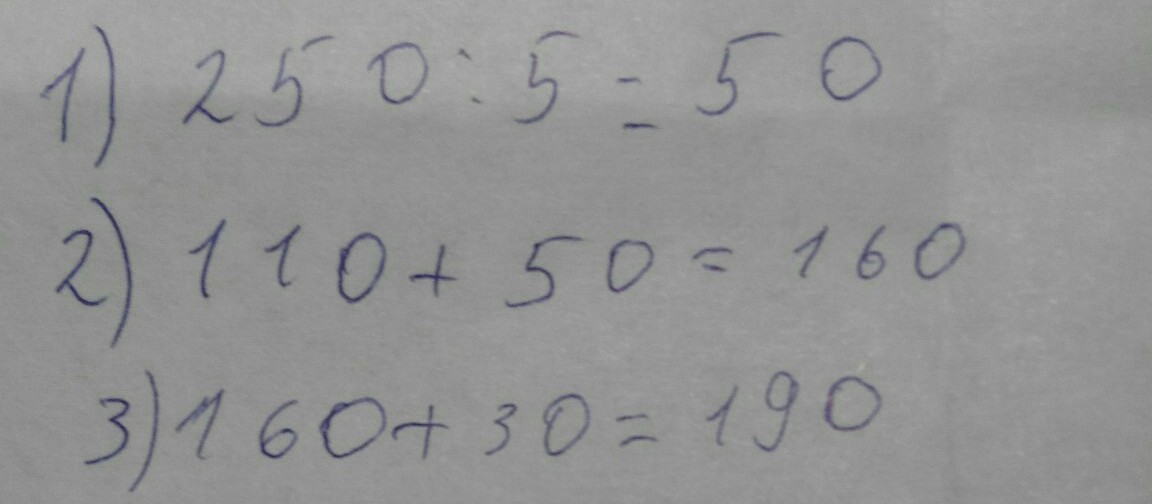 1) 250:5=50
2) 110+50=160
3) 160+30=190